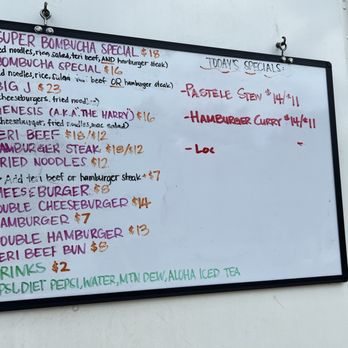 SUPER BOMBUCHA SPECIAL $18
ed noodles, rice, salad, teri beef, AND hamburger steak)
BOMBUCHA SPECIAL $16
d noodles, rice, salad, teri beef OR hamburger steak)
BIG J $23
cheeseburgers, fried noodles)
GENESIS (A.K.A "THE HARRY") $16
cheeseburger, fried noodles, mac salad)
TERI BEEF $18/$12
HAMBURGER STEAK $18/$12
FRIED NOODLES $12
Add teri beef or hamburger steak +$7
CHEESEBURGER $8
DOUBLE CHEESEBURGER $14
HAMBURGER $7
DOUBLE HAMBURGER $13
TERI BEEF BUN $8
DRINKS $2
PEPSI, DIET PEPSI, WATER, MTN DEW, ALOHA ICED TEA
TODAY'S SPECIALS:
-PASTELE STEW $14/$11
-HAMBURGER CURRY $14/$11
- LOC